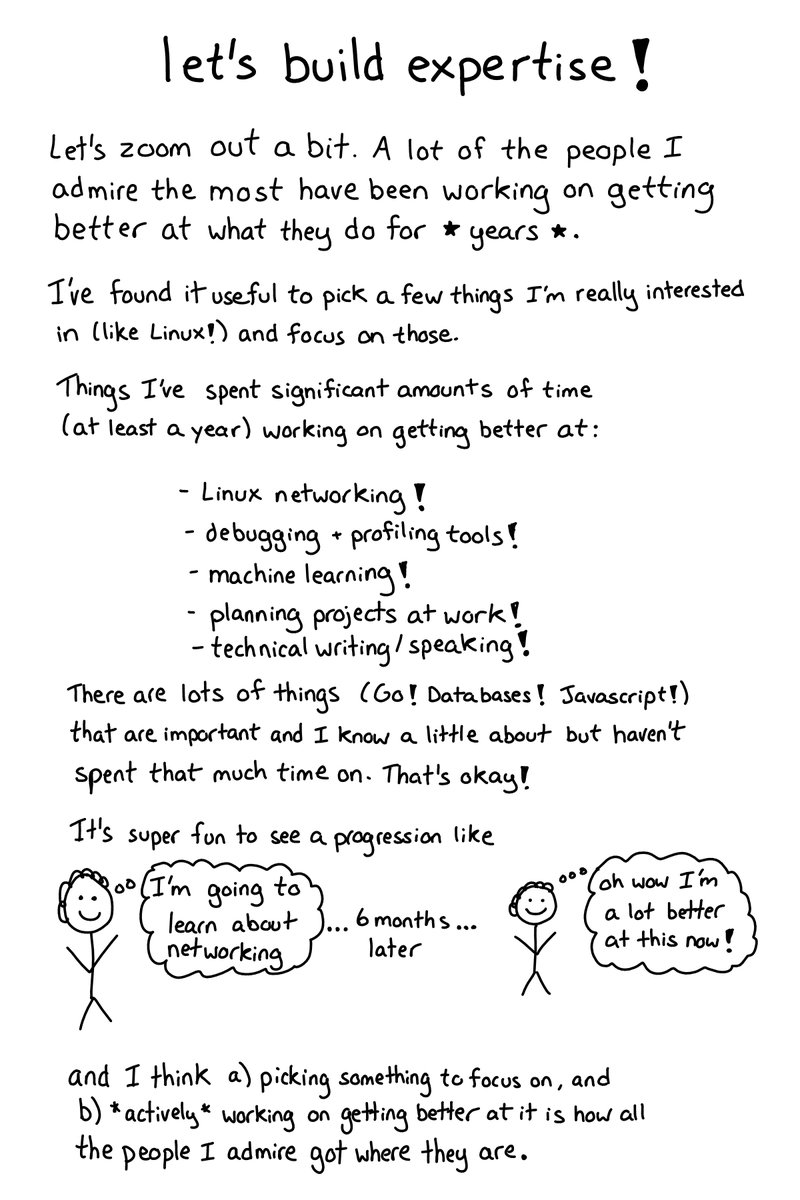 let's build expertise!
Let's zoom out a bit. A lot of the people I
admire the most have been working on getting
better at what they do for *years*.
I've found it useful to pick a few things I'm really interested
in (like Linux!) and focus on those.
Things I've spent significant amounts of time
(at least a year) working on getting better at:
- Linux networking!
- debugging + profiling tools!
- machine learning!
- planning projects at work!
- technical writing/speaking!
There are lots of things (Go! Databases! Javascript!)
that are important and I know a little about but haven't
spent that much time on. That's okay!
It's super fun to see a progression like
I'm going to
learn about
networking
... 6 months ...
later
oh wow I'm
a lot better
at this now!
and I think a) picking something to focus on, and
b) *actively* working on getting better at it is how all
the people I admire got where they are.